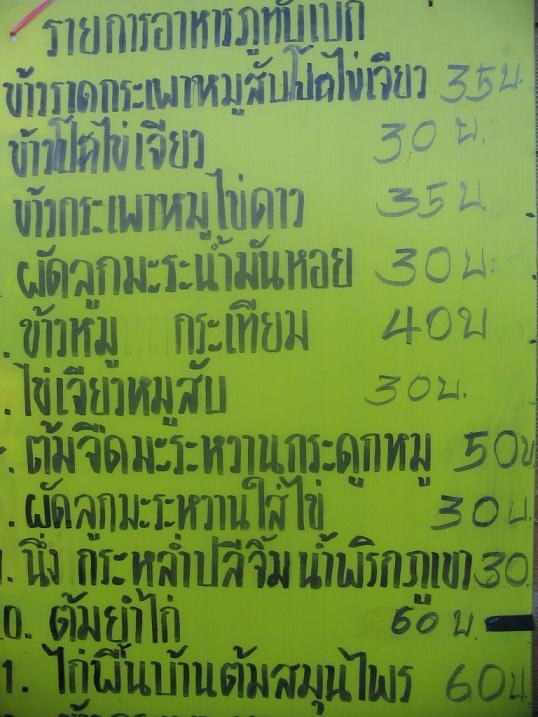 รายการอาหารภูทับเบิก
ข้าวราดกระเพาหมูสับโปะไข่เจียว 35บ.
ข้าวโปะไข่เจียว 30 บ.
ข้าวกระเพาหมูไข่ดาว 35 บ.
ผัดลูกมะระน้ำมันหอย 30 บ.
. ข้าวหมู กระเทียม 40 บ
. ไข่เจียวหมูสับ 30 บ.
. ต้มจืดมะระหวานกระดูกหมู 50 บ
. ผัดลูกมะระหวานใส่ไข่ 30 บ.
. นึ่ง กระหล่ำปลีจิ้มน้ำพริกภูเขา 30
0. ต้มยำไก่ 60 บ.
1. ไก่พื้นบ้านต้มสมุนไพร 60 บ.